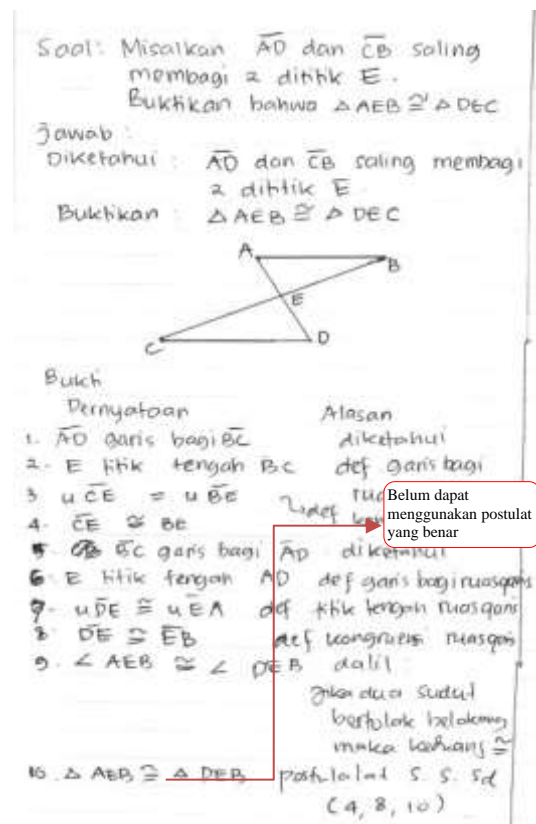 Soal: Misalkan AD dan CB saling
membagi 2 dititik E.
Buktikan bahwa △AEB ≅ △DEC
Jawab:
Diketahui: AD dan CB saling membagi
2 dititik E
Buktikan: △AEB ≅ △DEC
A
B
E
C
D
Bukti
Pernyataan Alasan
1. AD garis bagi BC diketahui
2. E titik tengah BC def garis bagi
3 u CE = u BE
4. CE ≅ BE def
Belum dapat
menggunakan postulat
yang benar
5 BC garis bagi AD diketahui
6 E titik tengah AD def garis bagi ruasgaris
7. u DE ≅ u EA def titik tengah ruasgaris
8 DE ≅ EB def kongruen ruasgaris
9. ∠ AEB ≅ ∠ DEB dalil
jika dua sudut
bertolak belakang
maka ≅
10. △ AEB ≅ △ DEB postulat S. S. Sd
(4, 8, 10)